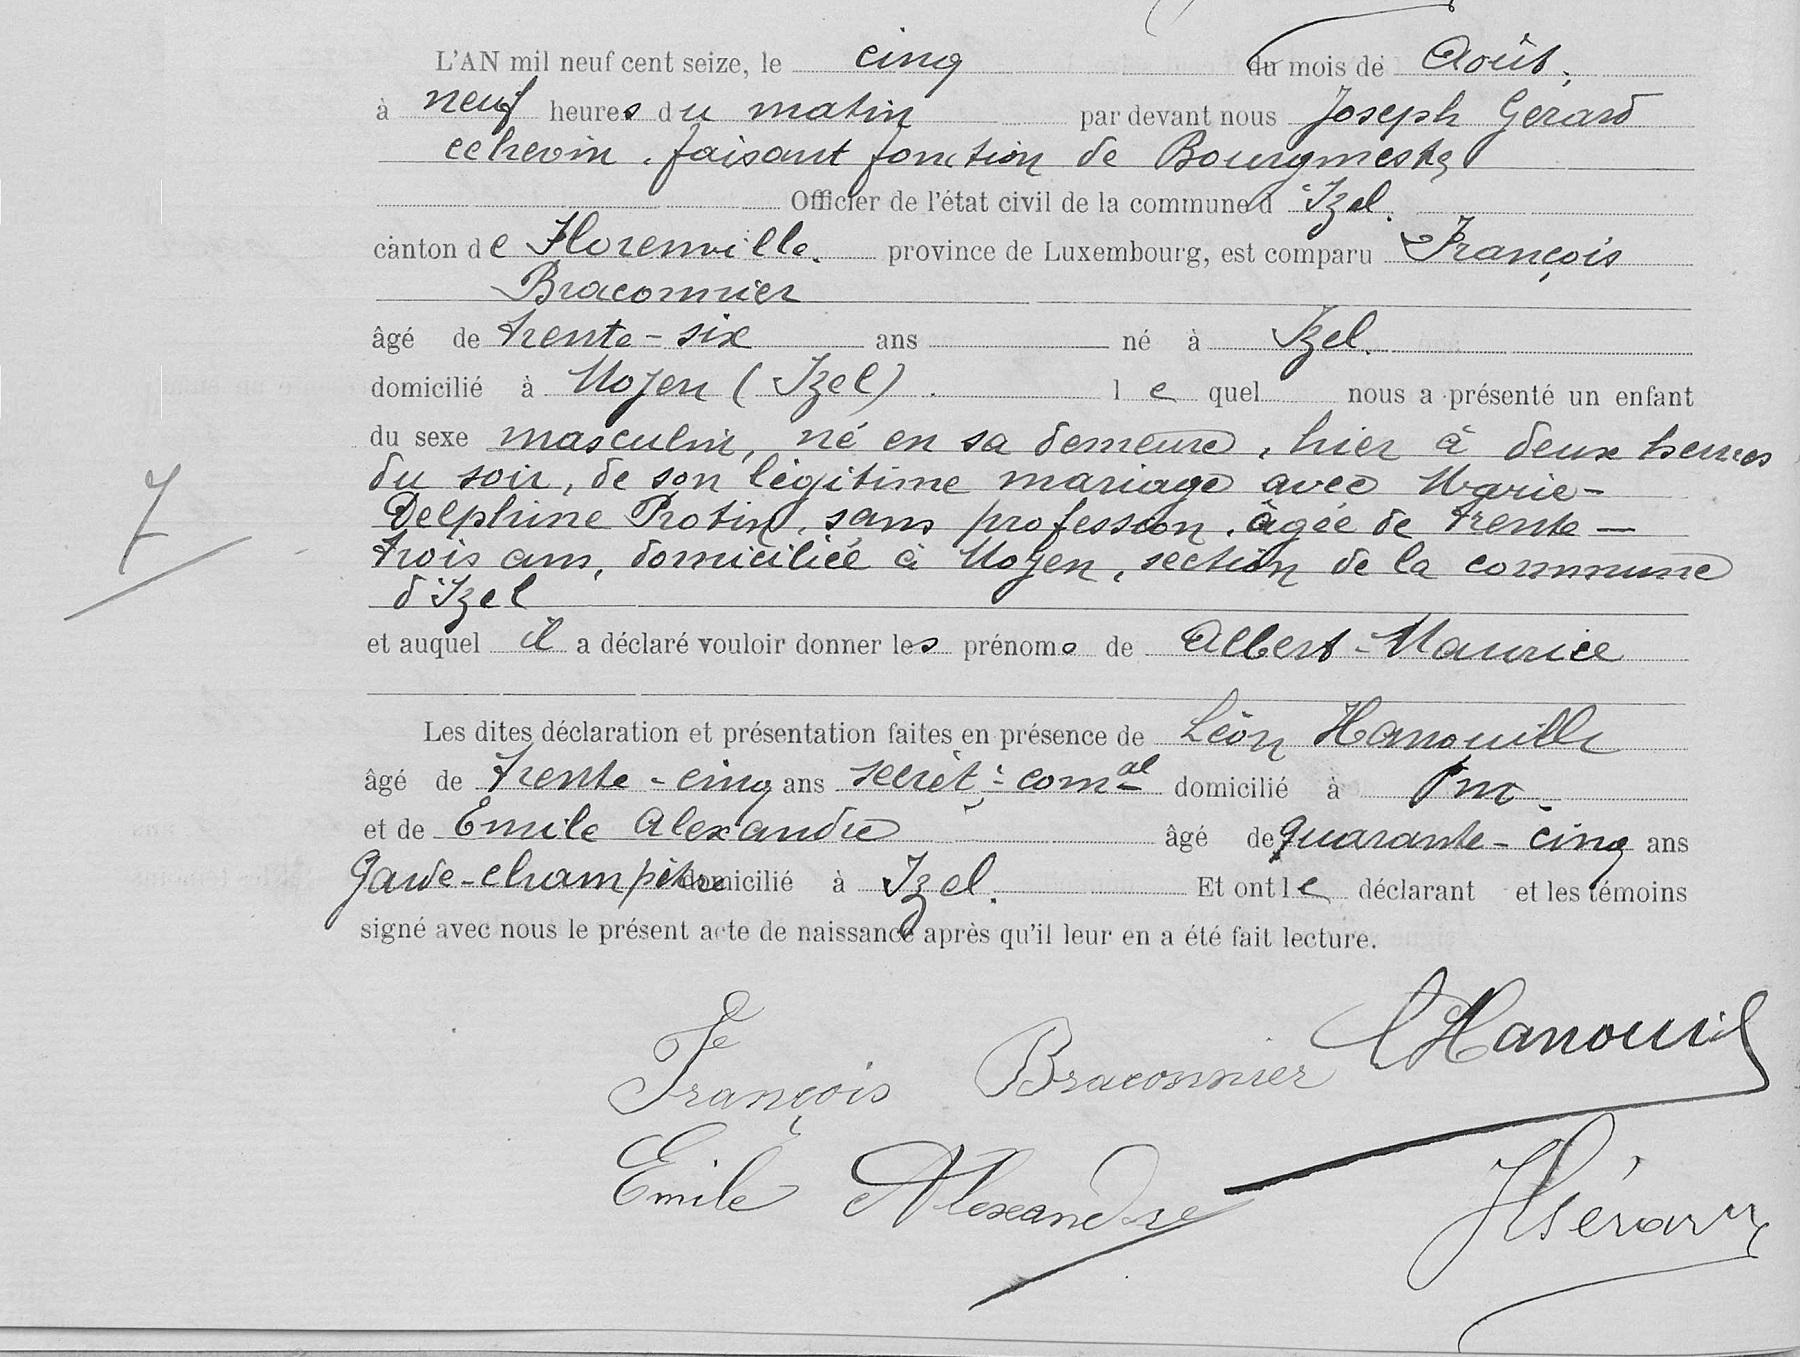 L'AN mil neuf cent seize, le cinq du mois de Août.
à neuf heures du matin par devant nous Joseph Gérard
echevin, faisant fonction de Bourgmestre
Officier de l'état civil de la commune d'Izel.
canton de Florenville. province de Luxembourg, est comparu François
Braconnier
âgé de trente-six ans né à Izel.
domicilié à Moyen (Izel). lequel nous a présenté un enfant
du sexe masculin, né en sa demeure, hier à deux heures
du soir, de son légitime mariage avec Marie-
Delphine Protin, sans profession, âgée de trente-
trois ans, domiciliée à Moyen, section de la commune
d'Izel
et auquel il a déclaré vouloir donner les prénoms de Albert-Maurice
Les dites déclaration et présentation faites en présence de Léon Hanouille
âgé de trente-cinq ans secrét: comal domicilié à
et de Emile Alexandre âgé de quarante-cinq ans
Garde-champêtre domicilié à Izel. Et ont le déclarant et les témoins
signé avec nous le présent acte de naissance après qu'il leur en a été fait lecture.
7
François Braconnier LHanouille
Emile Alexandre JGérard